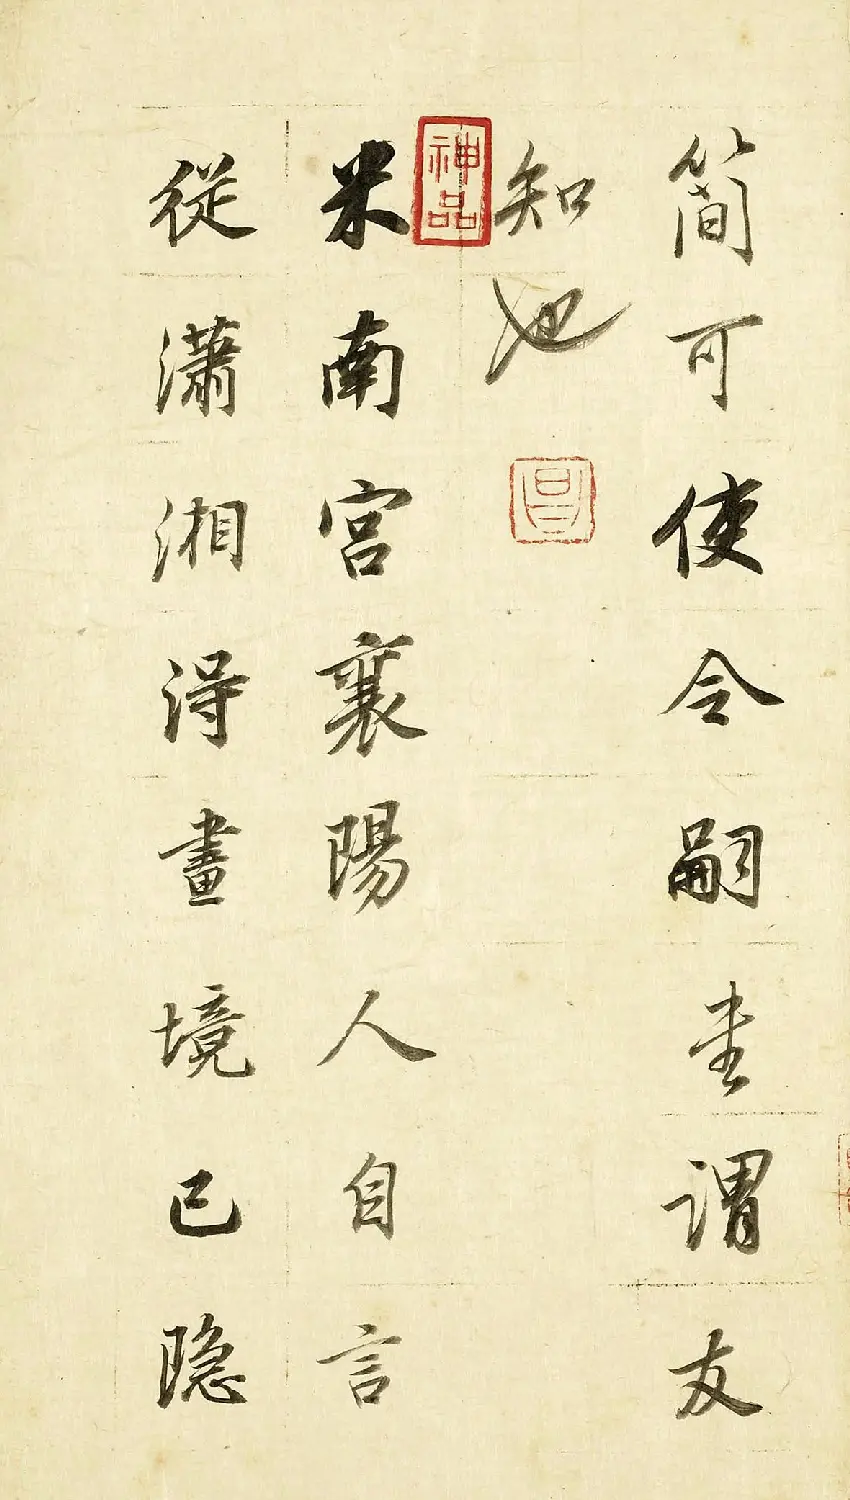 簡可使令嗣謂友
知也
昌
神品
米南宮襄陽人自言
從瀟湘得畫境已隱